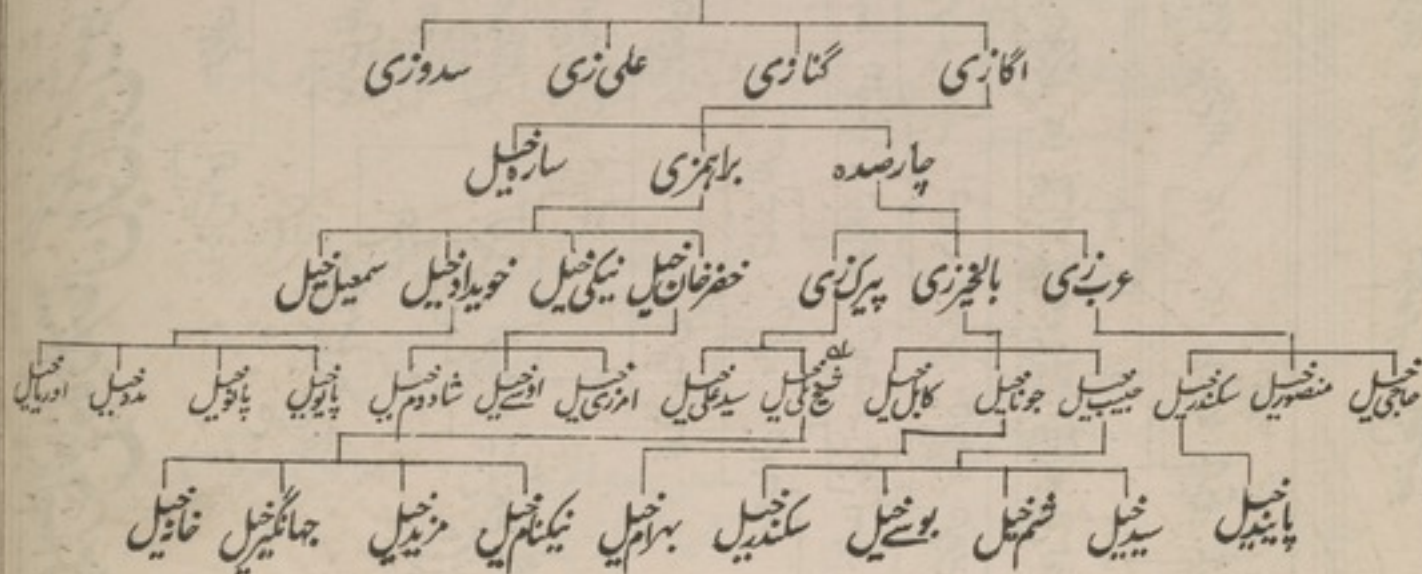 اکازی گنازی علی زی سدوزی
چارصده براہمزی سارہ خیل
عرب زی بالخیرزی پیرک زی خضرخان خیل نیکی خیل خویدادخیل سمعیل خیل
حاجی خیل منصورخیل سکندرخیل حبیب خیل جوناخیل کابل خیل شیخ علی خیل سید علی خیل امزری خیل اوسے خیل شادوم خیل پایوخیل پاکوخیل مددخیل اوریاخیل
پایندخیل سیدخیل شتم خیل بوسے خیل سکندرخیل بہرام خیل نیکنام خیل مزیدخیل جہانگیرخیل خانہ خیل